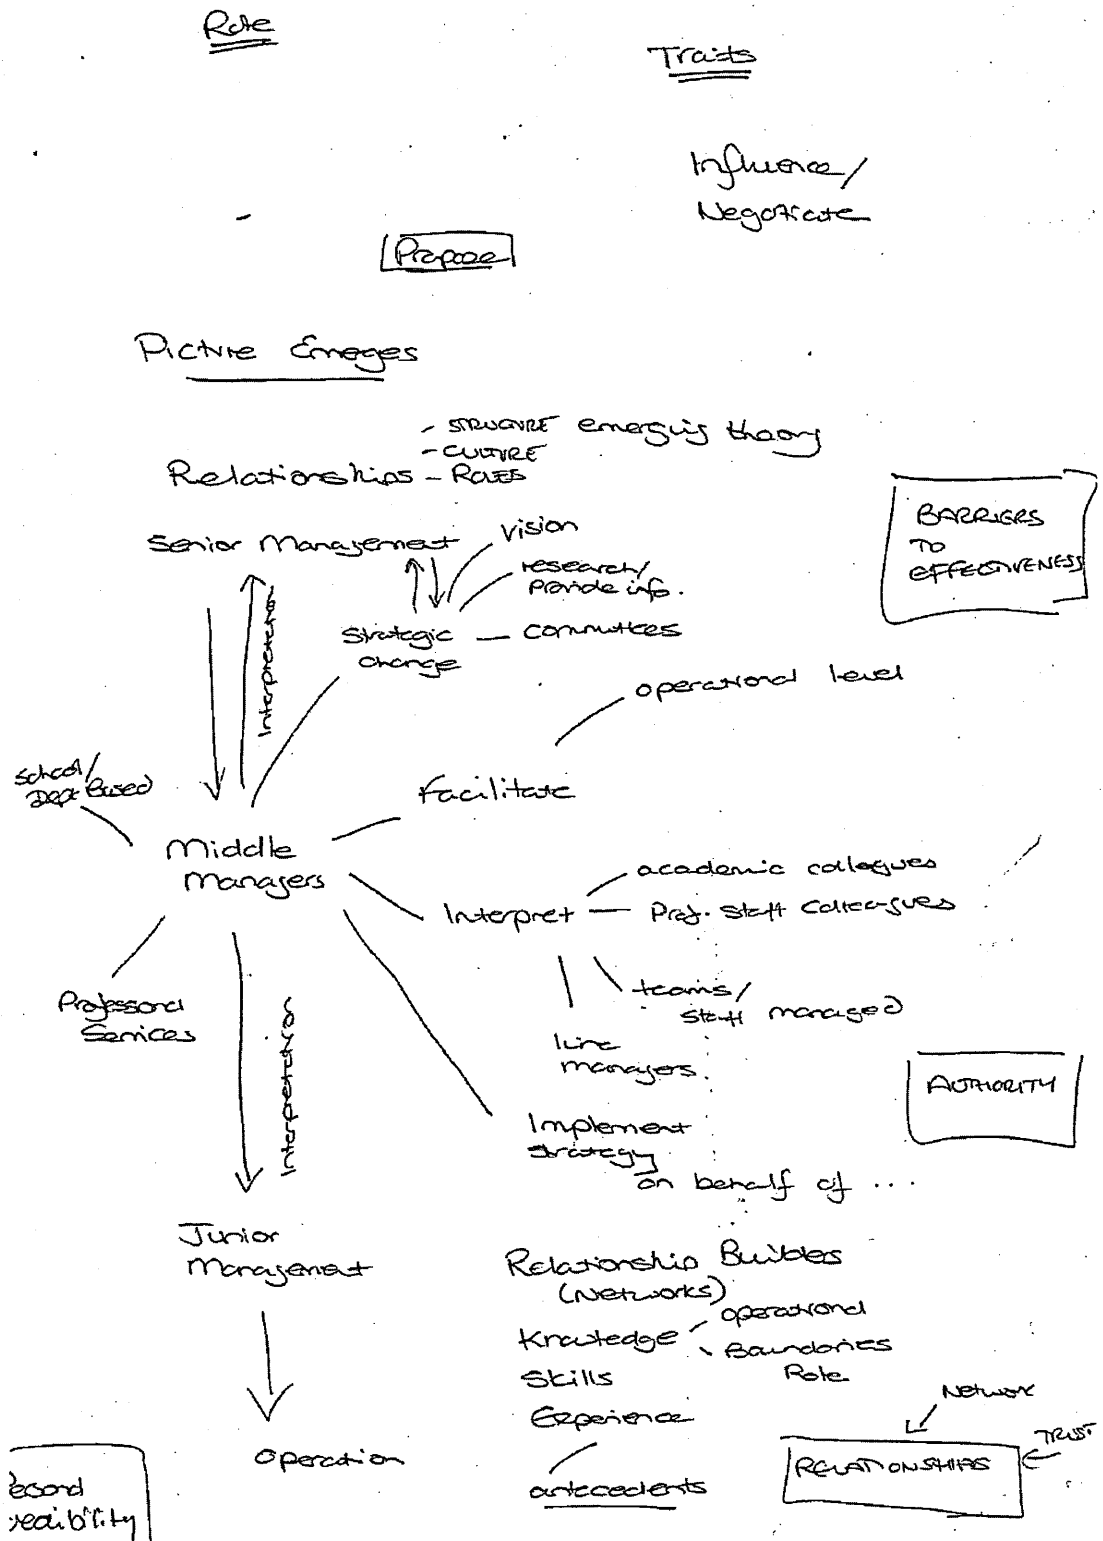 Role
Traits
Influence/
Negotiate
Propose
Picture Emeges
- STRUCTURE emerging theory
- CULTURE
Relationships - ROLES
BARRIERS
TO
EFFECTIVENESS
Senior Management
vision
research/
provide info.
Strategic - committees
change
Interpretation
operational level
School/
Dept Based
Facilitate
Middle
Managers
academic collegues
Interpret - Prof. Staff Colleagues
Professional
Services
teams/
staff managed
line
managers
Interpretation
AUTHORITY
Implement
strategy
on behalf of ...
Junior
Management
Relationship Builders
(Networks)
Knowledge - operational
- Boundaries
Role
Skills
Experience
Network
TRUST
operation
RELATIONSHIPS
antecedents